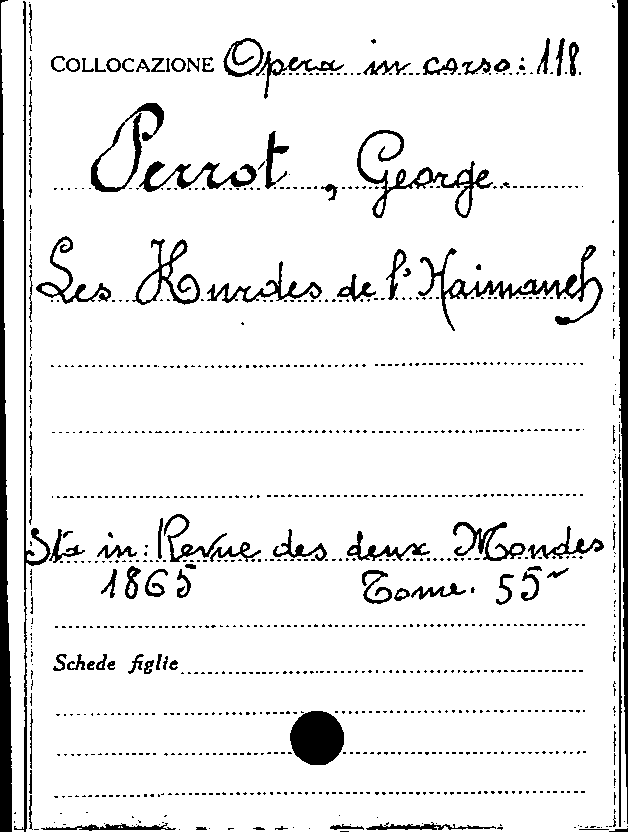 COLLOCAZIONE Opera in corso: 118
Perrot, George.
Les Kurdes de l'Haimaneh
Sta in: Revue des deux Mondes
1865 Tome. 55
Schede figlie